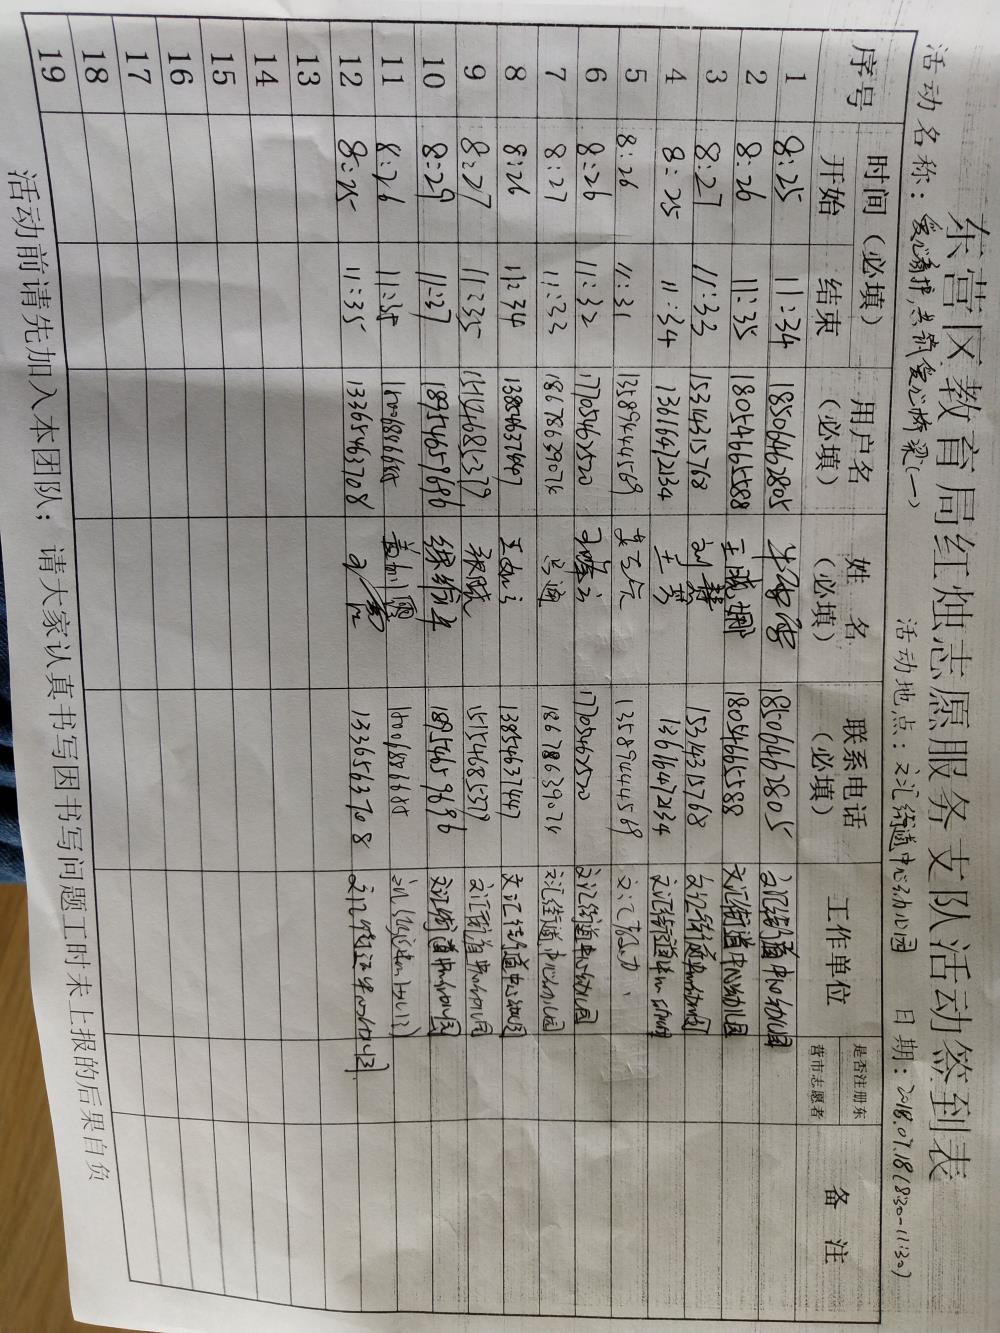 东营区教育局红烛志愿服务支队活动签到表
活动名称：爱心看护，共筑爱心桥梁(一) 活动地点：文汇街道中心幼儿园 日期：2018.07.18(8:30-11:30)
序号 时间（必填） 用户名（必填） 姓名（必填） 联系电话（必填） 工作单位 是否注册东营市志愿者 备注
开始 结束
1 8:25 11:34 18506462805 18506462805 文汇街道中心幼儿园
2 8:26 11:35 18054665588 王晓娜 18054665588 文汇街道中心幼儿园
3 8:27 11:33 15314315768 刘静 15314315768 文汇街道中心幼儿园
4 8:25 11:34 13616147234 王芳 13616147234 文汇街道中心幼儿园
5 8:26 11:31 13589444569 13589444569 文汇
6 8:26 11:32 17705462520 17705462520 文汇街道中心幼儿园
7 8:27 11:33 18678639026 马迪 18678639026 文汇街道中心幼儿园
8 8:26 11:34 13854637447 13854637447 文汇街道中心幼儿园
9 8:27 11:35 15154685379 15154685379 文汇街道中心幼儿园
10 8:29 11:37 18954659696 18954659696 文汇街道中心幼儿园
11 8:26 11:35
12 8:25 11:35 13365463708 13365463708
13
14
15
16
17
18
19
活动前请先加入本团队；请大家认真书写因书写问题工时未上报的后果自负